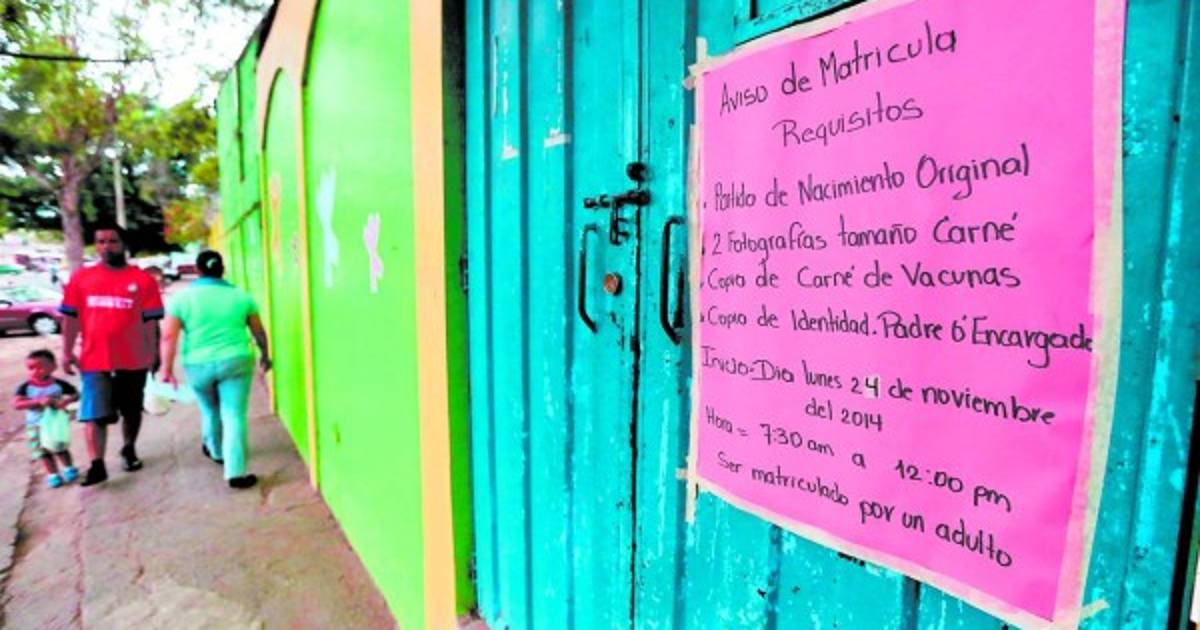 Aviso de Matricula
Requisitos
. Partida de Nacimiento Original
. 2 Fotografías tamaño Carné
. Copia de Carné de Vacunas
. Copia de Identidad. Padre ó Encargado
Inicio-Dia lunes 24 de noviembre
del 2014
Hora = 7:30 am a 12:00 pm
Ser matriculado por un adulto